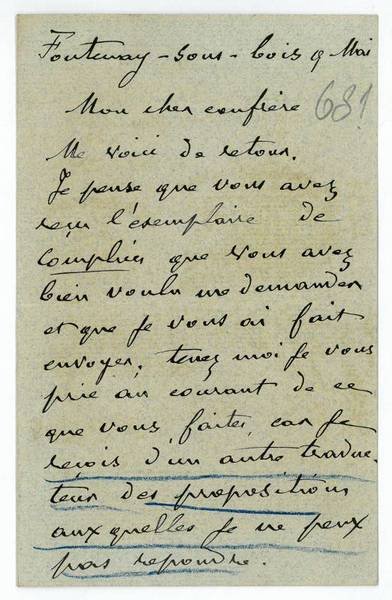 Fontenay-sous-bois 9 Mai
Mon cher confrère 681
Me voici de retour.
Je pense que vous avez
reçu l'exemplaire de
Complices que vous avez
bien voulu me demander
et que je vous ai fait
envoyer. tenez moi je vous
prie au courant de ce
que vous faites, car je
reçois d'un autre traduc-
teur des propositions
auxquelles je ne peux
pas repondre.